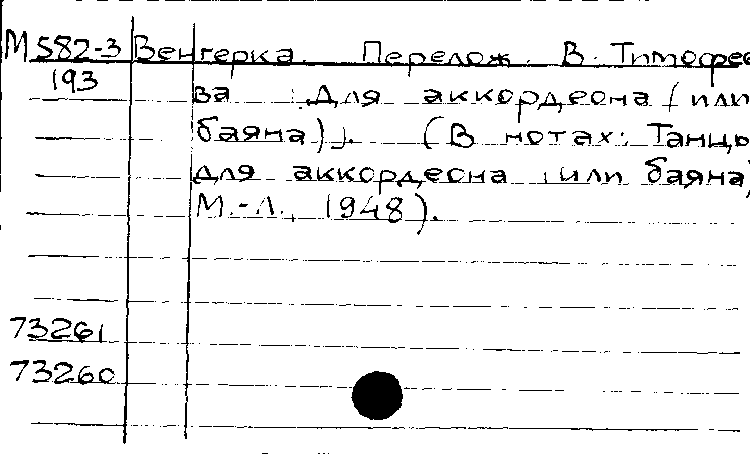 М 582-3 Венгерка. Перелож. В. Тимофее
193 ва [Для аккордеона (или
баяна)]. (В нотах: Танцы
для аккордеона (или баяна)
М.-Л., 1948).
73261
73260